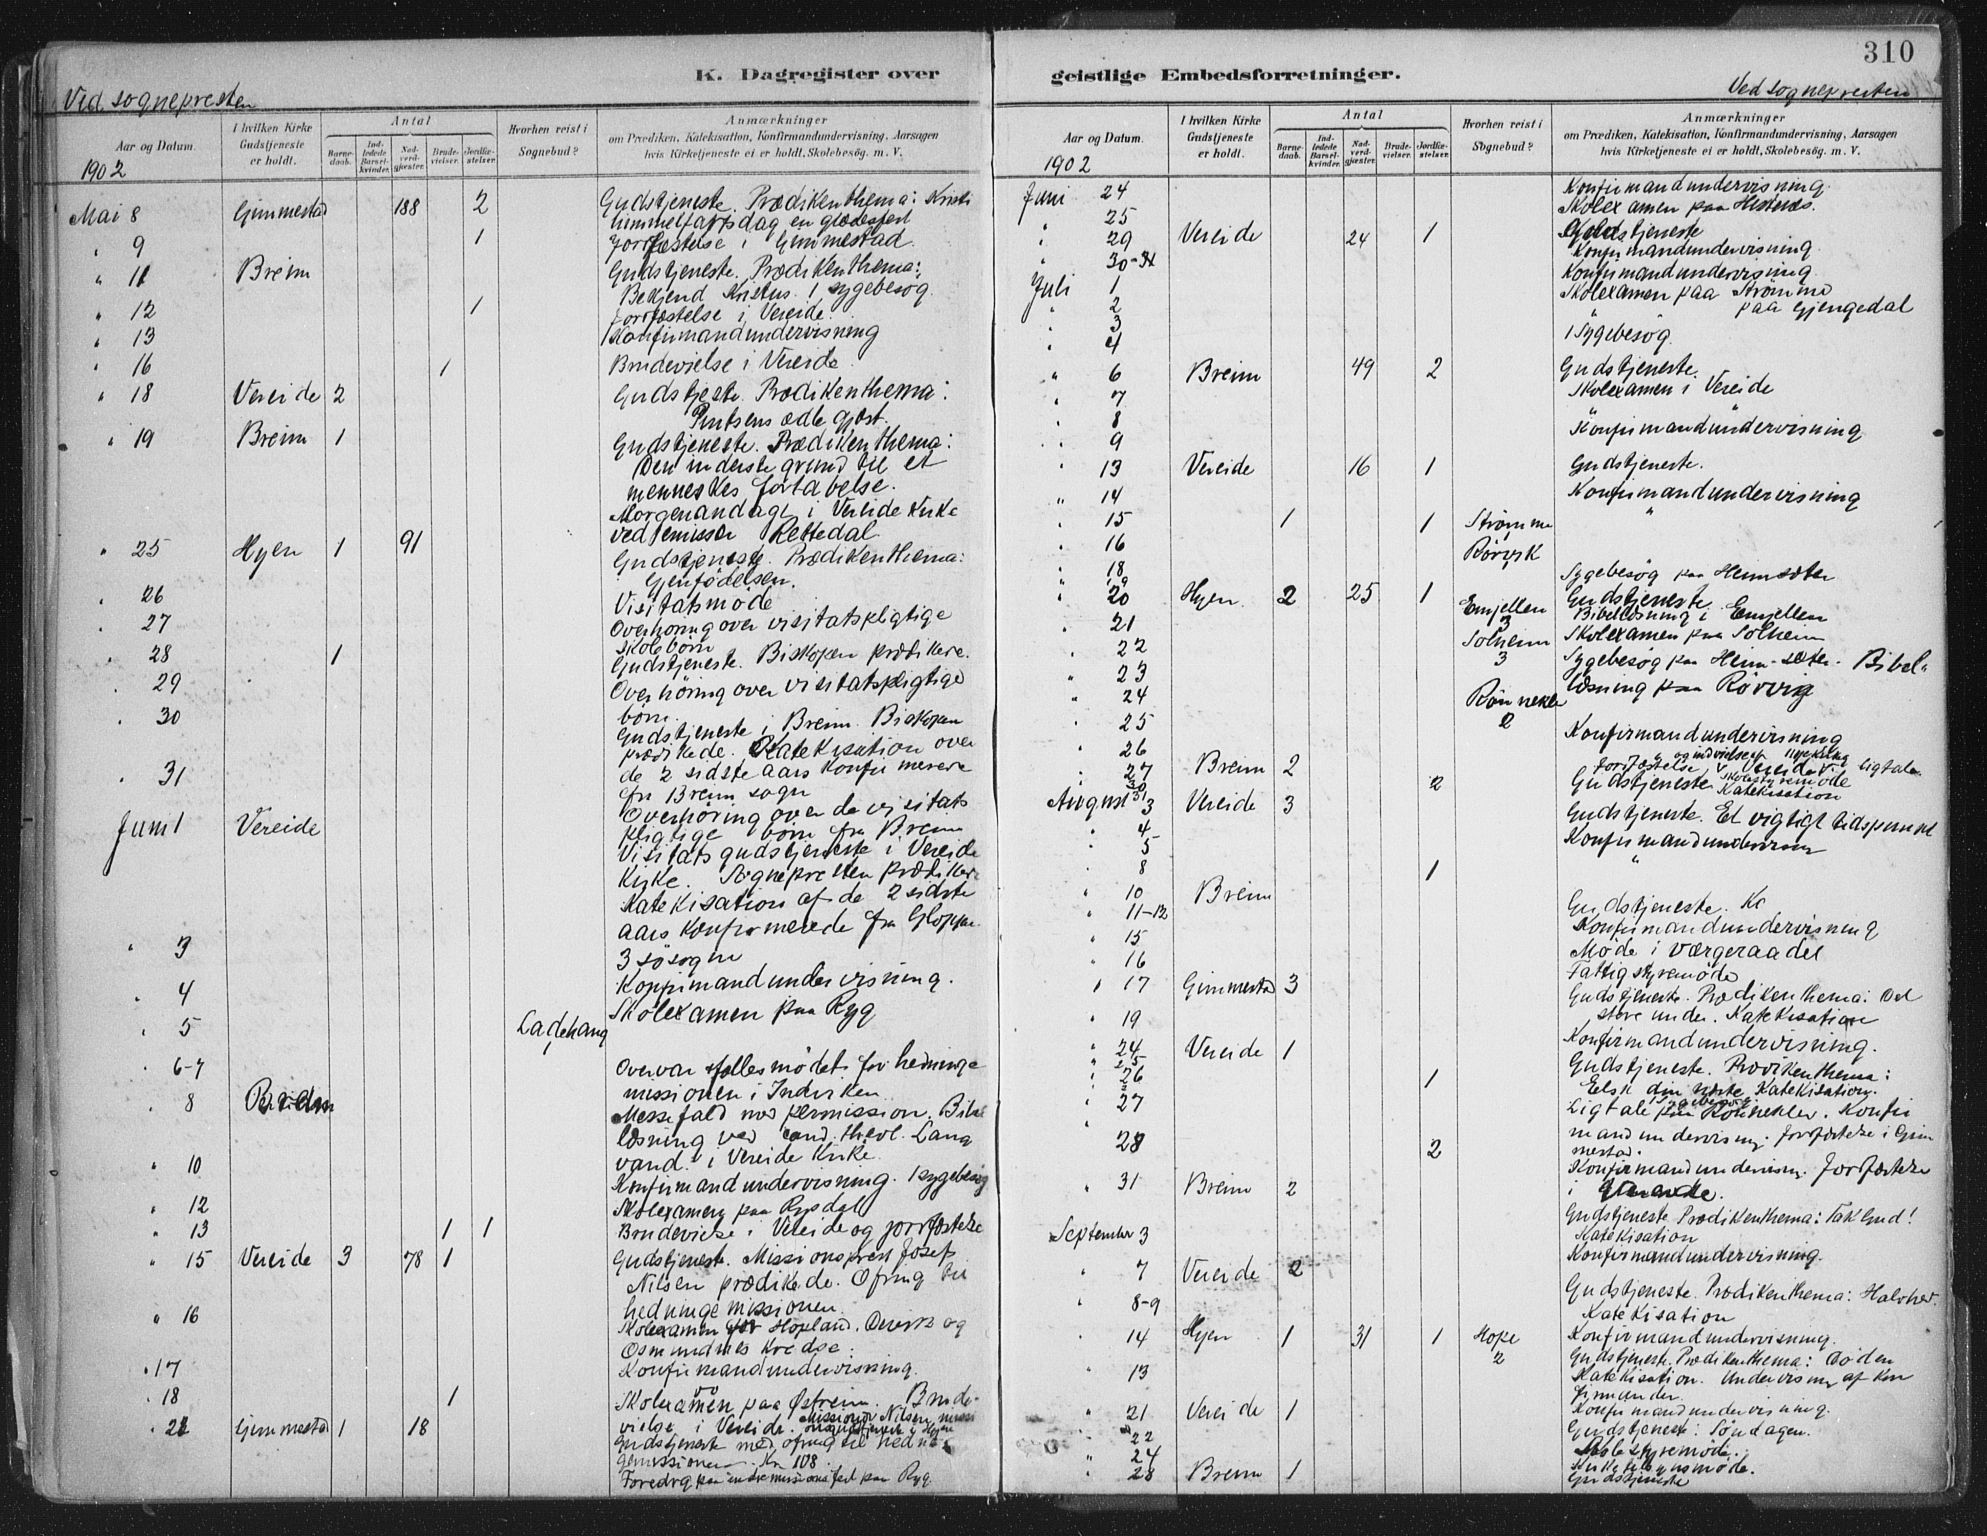 310
K. Dagregister over
geistlige Embedsforretninger.
Ved sognepresten
Aar og Datum.
I hvilken Kirke
Gudstjeneste
er holdt.
Antal
Barne-
daab.
Ind-
ledede
Barsel-
kvinder.
Nad-
verd-
gjæster.
Brude-
vielser.
Jordfæ-
stelser
Hvorhen reist i
Sognebud?
Anmærkninger
om Prædiken, Katekisation, Konfirmandundervisning, Aarsagen
hvis Kirketjeneste ei er holdt, Skolebesøg. m. V.
1902
Mai 8 Gimmestad 188 2 Gudstjeneste. Prædikenthema: Kristi
himmelfartsdag en glædesfest
" 9 1 Jordfæstelse i Gimmestad
" 11 Breim Gudstjeneste. Prædikenthema:
Bekjend Kristus. 1 sygebesøg.
" 12 1 Jordfæstelse i Vereide.
" 13 Konfirmandundervisning
" 16 1 Brudevielse i Vereide
" 18 Vereide 2 Gudstjeste. Prædikenthema:
Pintsens ædle gjæst.
" 19 Breim 1 Gudstjeneste. Prædikenthema:
Den inderste grund til et
menneskes fortabelse.
Morgenandagt i Vereide Kirke
ved emissær Rettedal
" 25 Hyen 1 91 Gudstjeneste. Prædikenthema:
Gjenfødelsen.
" 26 Visitatsmøde
" 27 Overhøring over visitatspligtige
skolebørn
" 28 1 Gudstjeneste. Biskopen prædikere.
" 29 Overhøring over visitatspligtige
børn
" 30 Gudstjeneste i Breim. Biskopen
prædikede. Katekisation over
de 2 sidste aars konfirmerede
fra Breim sogn
" 31 Overhøring over de visitats
pligtige børn fra Breim
Juni 1 Vereide Visitatsgudstjeneste i Vereide
Kirke. Sognepresten prædikere
Katekisation af de 2 sidste
aars konfirmerede fra Gloppen
3 søsogne
" 3 Konfirmandundervisning.
" 4 Skolexamen paa Ryg
" 5 Ladehaug
1
" 6-7 Overvar fællesmødet for hedninge
missionen i Indviken
" 8 Breim Messefald med permission. Bibel
læsning ved cand. theol. Lang
vand. i Vereide Kirke
" 10 Konfirmandundervisning. 1 sygebesøg
" 12 Skolexamen paa Rysdal
" 13 1 1 Brudevielse i Vereide og jordfæstelse
" 15 Vereide 3 78 1 Gudstjeneste. Missionsprest Josef
Nilsen prædikede. Ofring til
hedningemissionen
" 16 Skolexamen for Hopland, og
Osmundnes Kredse.
" 17 Konfirmandundervisning.
" 18 1 Skolexamen paa Østreim. Brude-
vielse i Vereide. Missionær Nilsen
" 22 Gimmestad 1 18 Gudstjeneste med ofring til hednin
gemissionen. Kr 108.
Foredrag paa indremissionsfest paa Ryg.
Ved sognepresten
Aar og Datum.
I hvilken Kirke
Gudstjeneste
er holdt.
Antal
Barne-
daab.
Ind-
ledede
Barsel-
kvinder.
Nad-
verd-
gjæster.
Brude-
vielser.
Jordfæ-
stelser.
Hvorhen reist i
Sognebud?
Anmærkninger
om Prædiken, Katekisation, Konfirmandundervisning, Aarsagen
hvis Kirketjeneste ei er holdt, Skolebesøg. m. V.
1902
Juni 24 Konfirmandundervisning.
" 25 Skolexamen paa Hestenes.
" 29 Vereide 24 1 Gudstjeneste
" 30 Konfirmandundervisning
Juli 1 Konfirmandundervisning
" 2 Skolexamen paa Strømme
" 3 " paa Gjengedal
" 4 1 Sygebesøg
" 6 Breim 49 2 Gudstjeneste.
" 7 Skolexamen i Vereide
" 8 " "
" 9 Konfirmandundervisning
" 13 Vereide 16 1 Gudstjeneste.
" 14 Konfirmandundervisning
" 15 1 1 Strømme "
" 16 1
Rørvik
" 18
19 Sygebesøg paa Heimsæter
" 20 Hyen 2 25 1 Gudstjeneste
" 21 Emjellen Bibellæsning i Emjellen
2
" 22 Solheim Skolexamen paa Solheim
3
" 23 Sygebesøg paa Heim-sæter. Bibel-
" 24 læsning paa Rørvig
Rønnekler
" 25 2 Konfirmandundervisning
" 26 "
" 27 Breim 2 Gudstjeneste
30 2 Skolestyremøde
31 Katekisation
August 3 Vereide 3 Gudstjeneste. Et vigtigt tidspunkt
" 4 Konfirmandundervisning
" 5 "
" 8 1
" 10 Breim Gudstjeneste. Ka
" 11-12 Konfirmandundervisning
" 15 Møde i værgeraadet
" 16 Fattigstyremøde
" 17 Gimmestad 3 Gudstjeneste. Prædikenthema: Det
store under. Katekisation
" 19 Konfirmandundervisning.
" 24 Vereide 1 Gudstjeneste. Prædikenthema:
" 25 Elsk din næste. Katekisation.
" 26 1 Sygebesøg
" 27 Ligtale paa Rønnekler. Konfir
mandundervisning. Jordfæstelse i Gim
mestad.
" 28 2 Konfirmandundervisn. Jordfæstelse
i Vereide.
" 31 Breim 2 Gudstjeneste Prædikenthema: Tak Gud!
Katekisation
September 3 Konfirmandundervisning.
" 7 Vereide 2 Gudstjeneste. Prædikenthema:
Katekisation
" 8-9 Konfirmandundervisning.
" 14 Hyen 1 31 1 Hope Gudstjeneste. Prædikenthema: Døden
2
" 13 Katekisation. Undervisning af kon
firmander.
Konfirmandundervisning.
" 21 Vereide 1 Gudstjeneste: Søndagen.
" 22 Skolestyremøde.
" 24
" 28 Breim 1 Gudstjeneste